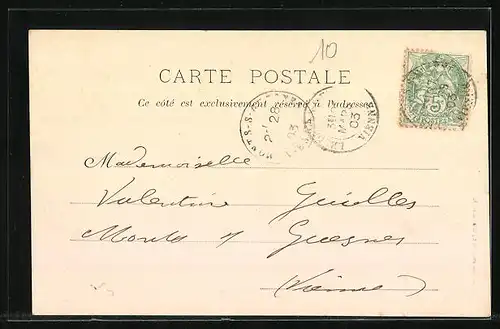 10
CARTE POSTALE
Ce côté est exclusivement réservé à l'adresse
28
03
MAR
03
VIENNE
5
03
Mademoiselle
Valentine
Monts s/ Guesnes
(Vienne)